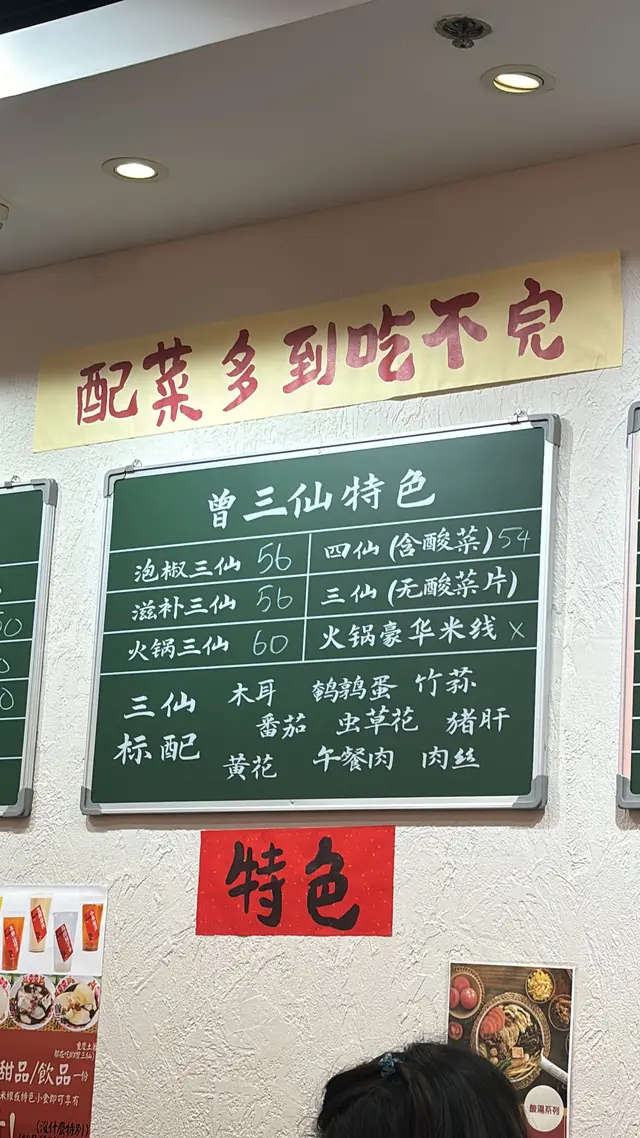 配菜多到吃不完
曾三仙特色
泡椒三仙 56 四仙(含酸菜)54
滋补三仙 56 三仙(无酸菜片)
火锅三仙 60 火锅豪华米线 x
三仙标配
木耳 鹌鹑蛋 竹荪
番茄 虫草花 猪肝
黄花 午餐肉 肉丝
特色
甜品/飲品一份
米線或特色小食即可享有
(沒什麼特別)
酸湯系列